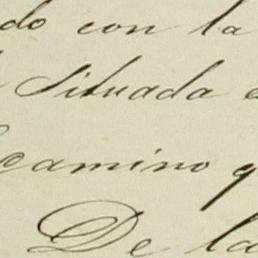 do con la
situada
camino q
De la